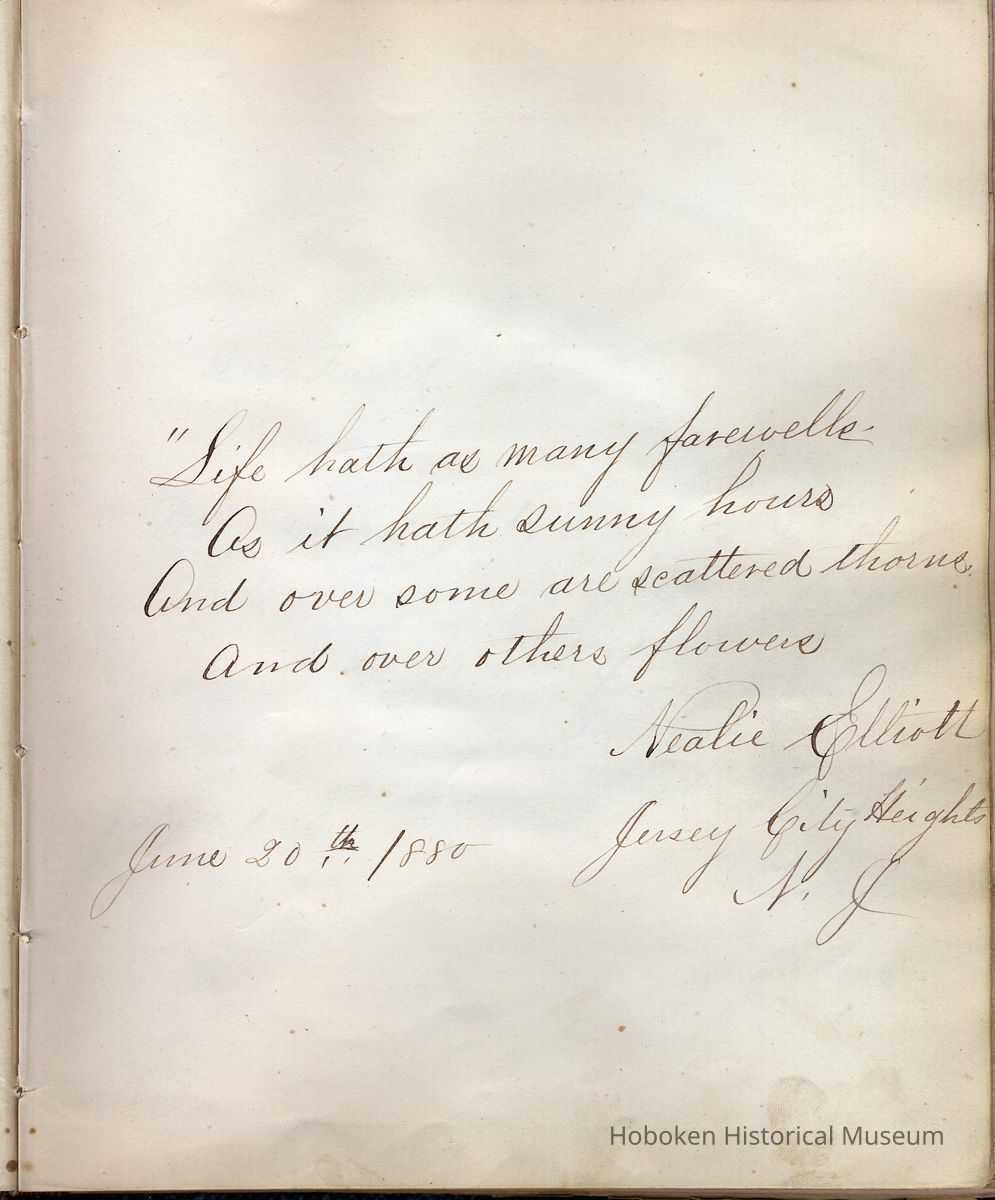 "Life hath as many farewells
As it hath sunny hours
And over some are scattered thorns
And over others flowers
Nealie Elliott
Jersey City Heights
June 20th. 1880
N. J
Hoboken Historical Museum